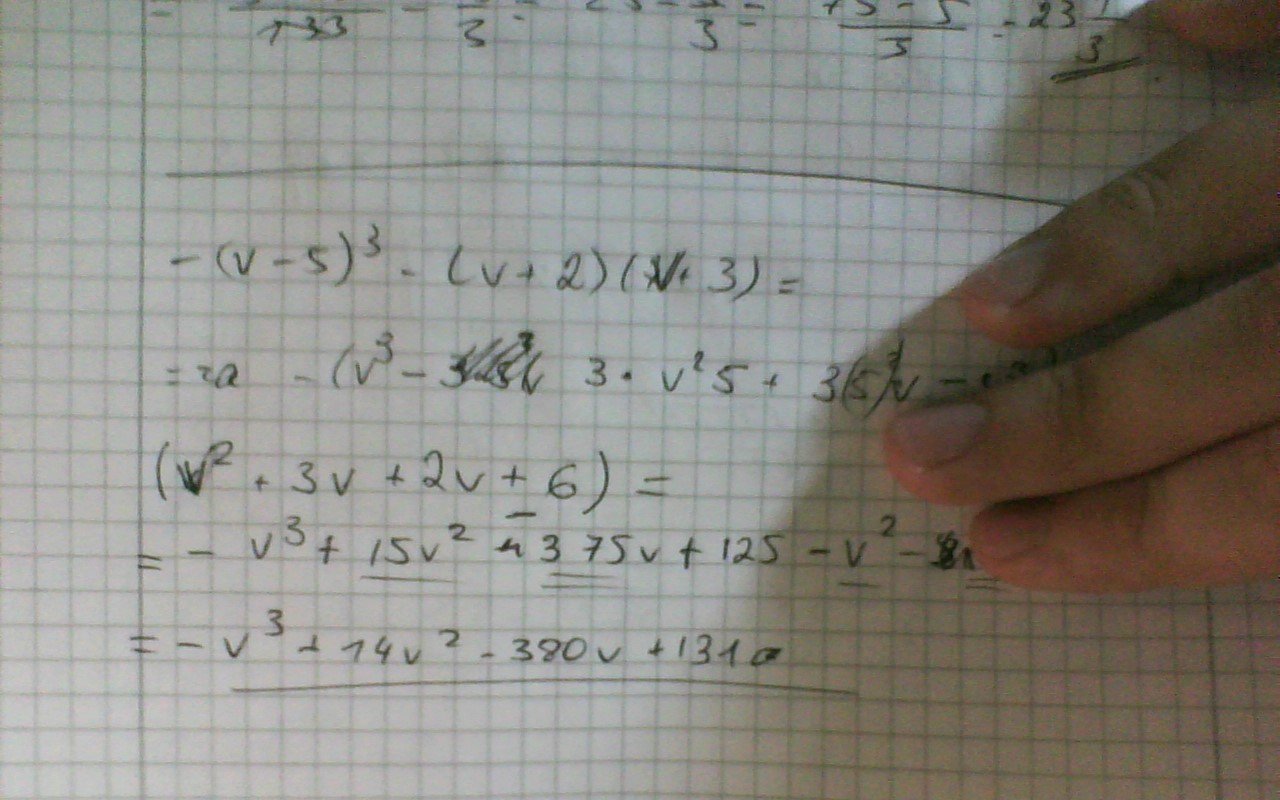 = 133 - 3 = 3 = 75 - 5 3 = 23 1 3
- (v - 5)³ - (v + 2)(v + 3) =
= - (v³ - 3 · v² 5 + 3(5)²v -
(v² + 3v + 2v + 6) =
= - v³ + 15v² - 375v + 125 - v² -
= - v³ + 14v² - 380v + 131